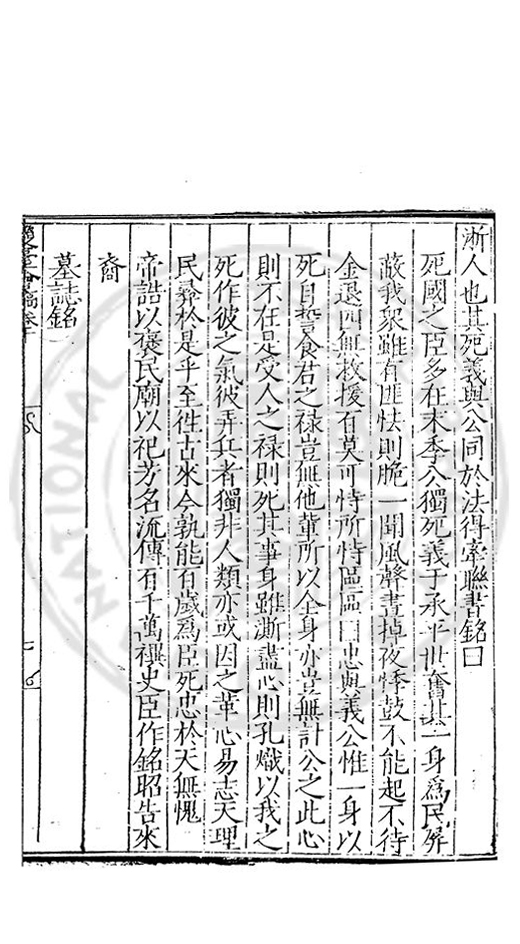 浙人也其死義與公同於法得牽聯書銘曰
死國之臣多在末季公獨死義于承平世奮其一身為民屏
蔽我衆雖有匪怯則脆一聞風聲晝掉夜悸鼓不能起不待
金退四無救援百莫可恃所恃區區曰忠與義公惟一身以
死自誓食君之禄豈無他輩所以全身亦豈無計公之此心
則不在是受人之禄則死其事身雖澌盡心則孔熾以我之
死作彼之氣彼弄兵者獨非人類亦或因之革心易志天理
民彝於是乎至徃古來今孰能有歲為臣死忠於天無愧
帝誥以褒民廟以祀芳名流傳百千萬禩史臣作銘昭告來
裔
墓誌銘
稿卷十
NATIONAL